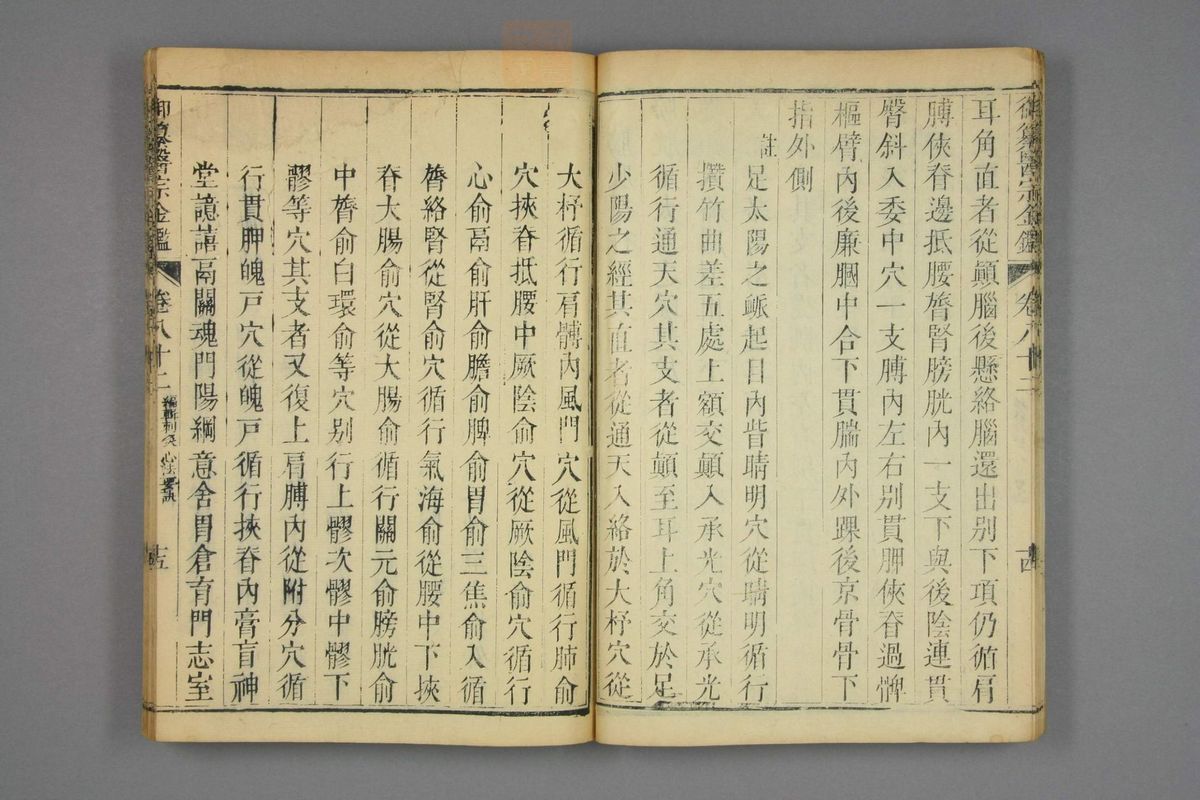 御纂醫宗金鑑 卷八十二 十四
耳角直者從顚腦後懸絡腦還出别下項仍循肩
膊俠脊邊抵腰膂腎膀胱內一支下與後陰連貫
臀斜入委中穴一支膊內左右别貫胛俠脊過髀
樞臂內後廉膕中合下貫腨內外踝後京骨骨下
指外側
註
足太陽之脈起目內眥睛明穴從睛明循行
攢竹曲差五處上額交巔入承光穴從承光
循行通天穴其支者從巔至耳上角交於足
少陽之經其直者從通天入絡於大杼穴從
大杼循行肩髆內風門穴從風門循行肺俞
穴挾脊抵腰中厥陰俞穴從厥陰俞穴循行
心俞鬲俞肝俞膽俞脾俞胃俞三焦俞入循
膂絡腎從腎俞穴循行氣海俞從腰中下挾
脊大腸俞穴從大腸俞循行關元俞膀胱俞
中膂俞白環俞等穴别行上髎次髎中髎下
髎等穴其支者又復上肩膊內從附分穴循
行貫胛魄戸穴從魄戸循行挾脊內膏肓神
堂譩譆鬲關魂門陽綱意舍胃倉肓門志室
御纂醫宗金鑑 卷八十二 編輯刺灸心法要訣 十五